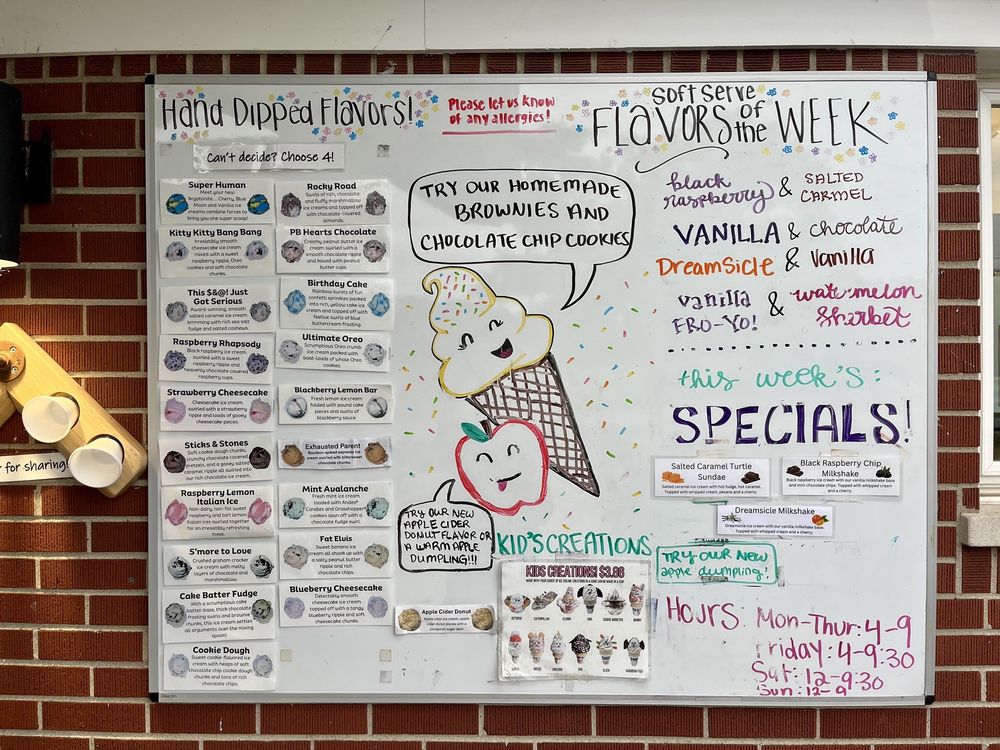 Hand Dipped Flavors!
Please let us know
of any allergies!
Soft Serve
FLAVORS of the WEEK
Can't decide? Choose 4!
Super Human
Meet your new
kryptonite... Cherry, Blue
Moon and Vanilla ice
creams combine forces to
bring you one super scoop!
Rocky Road
Swirls of rich, chocolate
and fluffy marshmallow
ice creams and topped off
with chocolate-covered
almonds.
Kitty Kitty Bang Bang
Irresistibly smooth
cheesecake ice cream
mixed with a sweet
raspberry ripple, Oreo
cookies and soft chocolate
chunks.
PB Hearts Chocolate
Creamy peanut butter ice
cream swirled with a
smooth chocolate ripple
and kissed with peanut
butter cups.
This $&@! Just
Got Serious
Award-winning, smooth
salted caramel ice cream
brimming with rich sea salt
fudge and salted cashews.
Birthday Cake
Rainbow bursts of fun
confetti sprinkles packed
into rich, yellow cake ice
cream and topped off with
festive swirls of blue
buttercream frosting.
Raspberry Rhapsody
Black raspberry ice cream
swirled with a sweet
raspberry ripple and
heavenly chocolate covered
raspberry cups.
Ultimate Oreo
Scrumptious Oreo crumb
ice cream packed with
boat-loads of whole Oreo
cookies.
Strawberry Cheesecake
Cheesecake ice cream
swirled with a strawberry
ripple and loads of gooey
cheesecake pieces.
Blackberry Lemon Bar
Fresh lemon ice cream
folded with pound cake
pieces and swirls of
blackberry sauce.
Sticks & Stones
Soft cookie dough chunks,
crunchy chocolate covered
pretzels, and a gooey salted
caramel ripple all swirled into
our rich chocolate ice cream.
Exhausted Parent
Bourbon-spiked espresso ice
cream swirled with bittersweet
chocolate chunks.
Raspberry Lemon
Italian Ice
Non-dairy, non-fat, sweet
raspberry and tart lemon
Italian ices swirled together
for an irresistibly refreshing
treat.
Mint Avalanche
Fresh mint ice cream
loaded with Andes®
Candies and Grasshopper
cookies spun off with a
chocolate fudge swirl.
S'more to Love
Crushed graham cracker
ice cream with melty
layers of chocolate and
marshmallow.
Fat Elvis
Sweet banana ice
cream all shook up with
a salty peanut butter
ripple and rich
chocolate chips.
Cake Batter Fudge
With a scrumptious cake
batter-base, thick chocolate
frosting swirls and brownie
chunks, this ice cream settles
all arguments over the mixing
spoon!
Blueberry Cheesecake
Delectably smooth
cheesecake ice cream
topped off with a tangy
blueberry ripple and soft
cheesecake chunks.
Cookie Dough
Sweet cookie-flavored ice
cream with heaps of soft
chocolate chip cookie dough
chunks and tons of rich
chocolate chips.
Apple Cider Donut
TRY OUR HOMEMADE
BROWNIES AND
CHOCOLATE CHIP COOKIES
TRY OUR NEW
APPLE CIDER
DONUT FLAVOR OR
A WARM APPLE
DUMPLING!!!
KID'S CREATIONS
KIDS CREATIONS! $3.86
black raspberry & SALTED CARMEL
VANILLA & chocolate
Dreamsicle & Vanilla
vanilla FRO-YO! & watermelon Sherbet
this week's:
SPECIALS!
Salted Caramel Turtle
Sundae
Salted caramel ice cream with hot fudge, hot caramel.
Topped with whipped cream, pecans and a cherry
Black Raspberry Chip
Milkshake
Black raspberry ice cream with our vanilla milkshake base
and mini chocolate chips. Topped with whipped cream
and a cherry
Dreamsicle Milkshake
Dreamsicle ice cream with our vanilla milkshake base.
Topped with whipped cream and a cherry.
TRY OUR NEW
apple dumpling!
HOURS: Mon-Thur: 4-9
Friday: 4-9:30
Sat: 12-9:30
Sun: 12-9
for sharing!